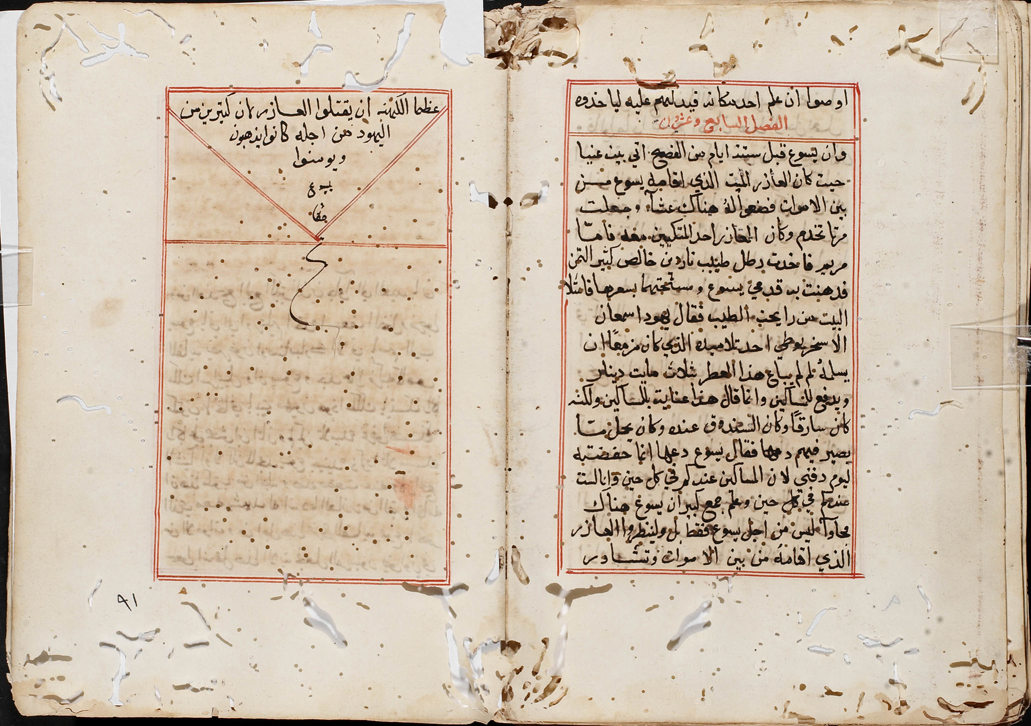 اوصوا ان علم احد مكانه فيدلهم عليه لياخذوه
الفصل السابع وعشرون
وان يسوع قبل ستة ايام من الفصح اتي بيت عنيا
حيت كان العازر الميت الذي اقامه يسوع من
بين الاموات فصنعوا له هناك عشآء وجعلت
مرتا تخدم وكان العازر احد المتكيين معه فاما
مريم فاخدت رطل طيب ناردين خالص كتير التمن
فدهنت به قدمي يسوع ومسحتهما بشعرها فامتلا
البيت من رايحة الطيب فقال يهودا سمعان
الاسخريوطي احد تلاميده الذي كان مزمعًا ان
يسلمه لم لم يباع هذا العطر بثلاث مات دينار
ويدفع للمساكين وانما قال هذا عناية للمساكين ولكنه
كان سارقًا وكان الصندوق عنده وكان يحل ما
يصير فيهم دعها فقال يسوع دعها انما حفضته
ليوم دفني لان المساكين عندكم في كل حين وانا لست
عندكم في كل حين وعلم جمع كبير ان يسوع هناك
فجآوا ليس من اجل يسوع فقط بل ولينظروا العازر
الذي اقامه من بين الاموات وتشاور
عظما الكهنه ان يقتلوا العازر لان كتيرين من
اليهود من اجله كانوا يدهبون
ويومنوا
بيسوع
حقا
٩١